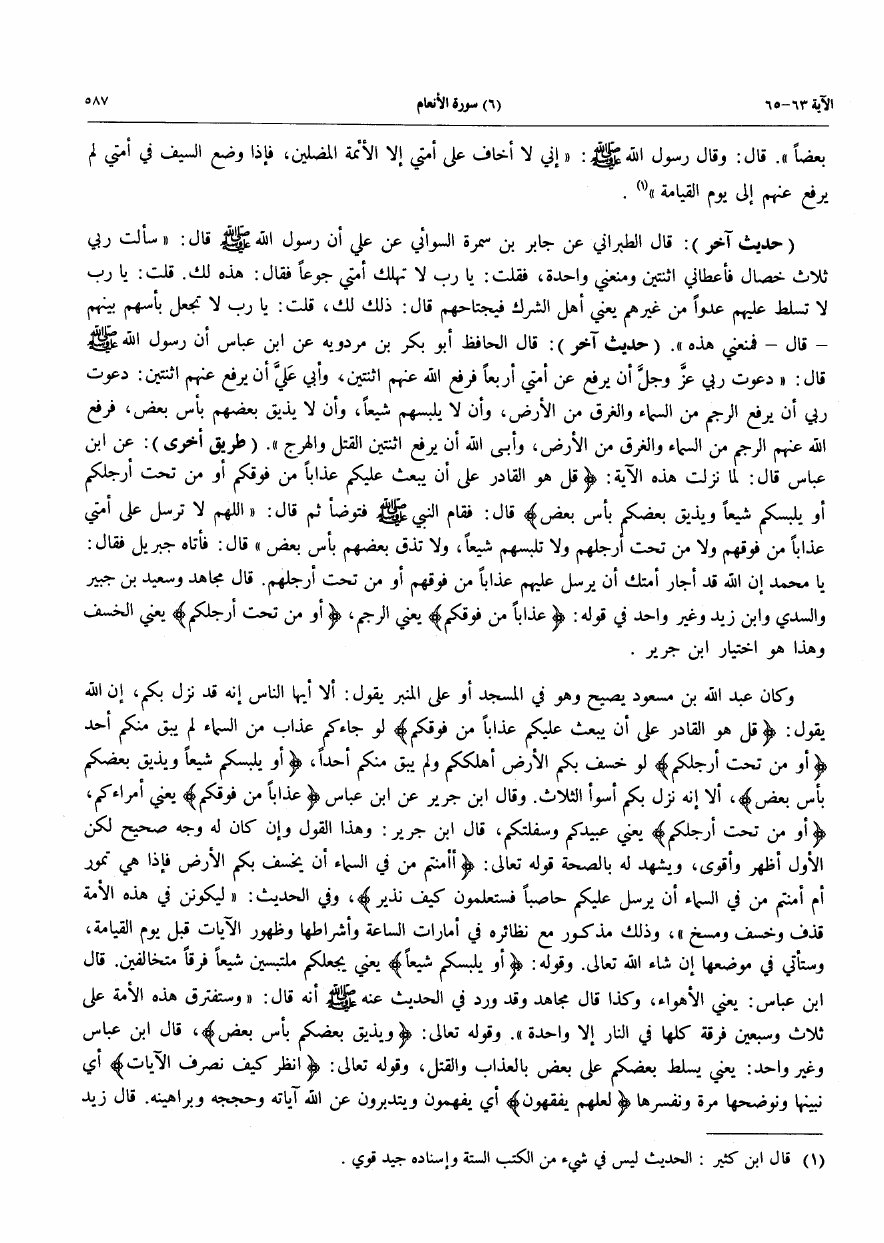 الآية ٦٣-٦٥ (٦) سورة الأنعام ٥٨٧
بعضاً ». قال: وقال رسول الله ﷺ : « إني لا أخاف على أمتي إلا الأئمة المضلين، فإذا وضع السيف في أمتي لم
يرفع عنهم إلى يوم القيامة »(١) .
( حديث آخر ): قال الطبراني عن جابر بن سمرة السوائي عن علي أن رسول الله ﷺ قال: « سألت ربي
ثلاث خصال فأعطاني اثنتين ومنعني واحدة، فقلت: يا رب لا تهلك أمتي جوعاً فقال: هذه لك. قلت: يا رب
لا تسلط عليهم عدواً من غيرهم يعني أهل الشرك فيجتاحهم قال: ذلك لك، قلت: يا رب لا تجعل بأسهم بينهم
– قال – فمنعني هذه ». ( حديث آخر ): قال الحافظ أبو بكر بن مردويه عن ابن عباس أن رسول الله ﷺ
قال: « دعوت ربي عزَّ وجلَّ أن يرفع عن أمتي أربعاً فرفع الله عنهم اثنتين، وأبي عَليَّ أن يرفع عنهم اثنتين: دعوت
ربي أن يرفع الرجم من السماء والغرق من الأرض، وأن لا يلبسهم شيعاً، وأن لا يذيق بعضهم بأس بعض، فرفع
الله عنهم الرجم من السماء والغرق من الأرض، وأبى الله أن يرفع اثنتين القتل والهرج ». ( طريق أخرى ): عن ابن
عباس قال: لما نزلت هذه الآية: ﴿ قل هو القادر على أن يبعث عليكم عذاباً من فوقكم أو من تحت أرجلكم
أو يلبسكم شيعاً ويذيق بعضكم بأس بعض﴾ قال: فقام النبي ﷺ فتوضأ ثم قال: « اللهم لا ترسل على أمتي
عذاباً من فوقهم ولا من تحت أرجلهم ولا تلبسهم شيعاً، ولا تذق بعضهم بأس بعض » قال: فأتاه جبريل فقال:
يا محمد إن الله قد أجار أمتك أن يرسل عليهم عذاباً من فوقهم أو من تحت أرجلهم. قال مجاهد وسعيد بن جبير
والسدي وابن زيد وغير واحد في قوله: ﴿ عذاباً من فوقكم﴾ يعني الرجم، ﴿ أو من تحت أرجلكم﴾ يعني الخسف
وهذا هو اختيار ابن جرير .
وكان عبد الله بن مسعود يصيح وهو في المسجد أو على المنبر يقول: ألا أيها الناس إنه قد نزل بكم، إن الله
يقول: ﴿ قل هو القادر على أن يبعث عليكم عذاباً من فوقكم﴾ لو جاءكم عذاب من السماء لم يبق منكم أحد
﴿ أو من تحت أرجلكم﴾ لو خسف بكم الأرض أهلككم ولم يبق منكم أحداً، ﴿ أو يلبسكم شيعاً ويذيق بعضكم
بأس بعض﴾، ألا إنه نزل بكم أسوأ الثلاث. وقال ابن جرير عن ابن عباس ﴿ عذاباً من فوقكم﴾ يعني أمراءكم،
﴿ أو من تحت أرجلكم﴾ يعني عبيدكم وسفلتكم، قال ابن جرير: وهذا القول وإن كان له وجه صحيح لكن
الأول أظهر وأقوى، ويشهد له بالصحة قوله تعالى: ﴿ أأمنتم من في السماء أن يخسف بكم الأرض فإذا هي تمور
أم أمنتم من في السماء أن يرسل عليكم حاصباً فستعلمون كيف نذير ﴾، وفي الحديث: « ليكونن في هذه الأمة
قذف وخسف ومسخ »، وذلك مذكور مع نظائره في أمارات الساعة وأشراطها وظهور الآيات قبل يوم القيامة،
وستأتي في موضعها إن شاء الله تعالى. وقوله: ﴿ أو يلبسكم شيعاً﴾ يعني يجعلكم ملتبسين شيعاً فرقاً متخالفين. قال
ابن عباس: يعني الأهواء، وكذا قال مجاهد وقد ورد في الحديث عنه ﷺ أنه قال: « وستفترق هذه الأمة على
ثلاث وسبعين فرقة كلها في النار إلا واحدة ». وقوله تعالى: ﴿ ويذيق بعضكم بأس بعض﴾، قال ابن عباس
وغير واحد: يعني يسلط بعضكم على بعض بالعذاب والقتل، وقوله تعالى: ﴿ انظر كيف نصرف الآيات﴾ أي
نبينها ونوضحها مرة ونفسرها ﴿ لعلهم يفقهون﴾ أي يفهمون ويتدبرون عن الله آياته وحججه وبراهينه. قال زيد
(١) قال ابن كثير : الحديث ليس في شيء من الكتب الستة وإسناده جيد قوي .